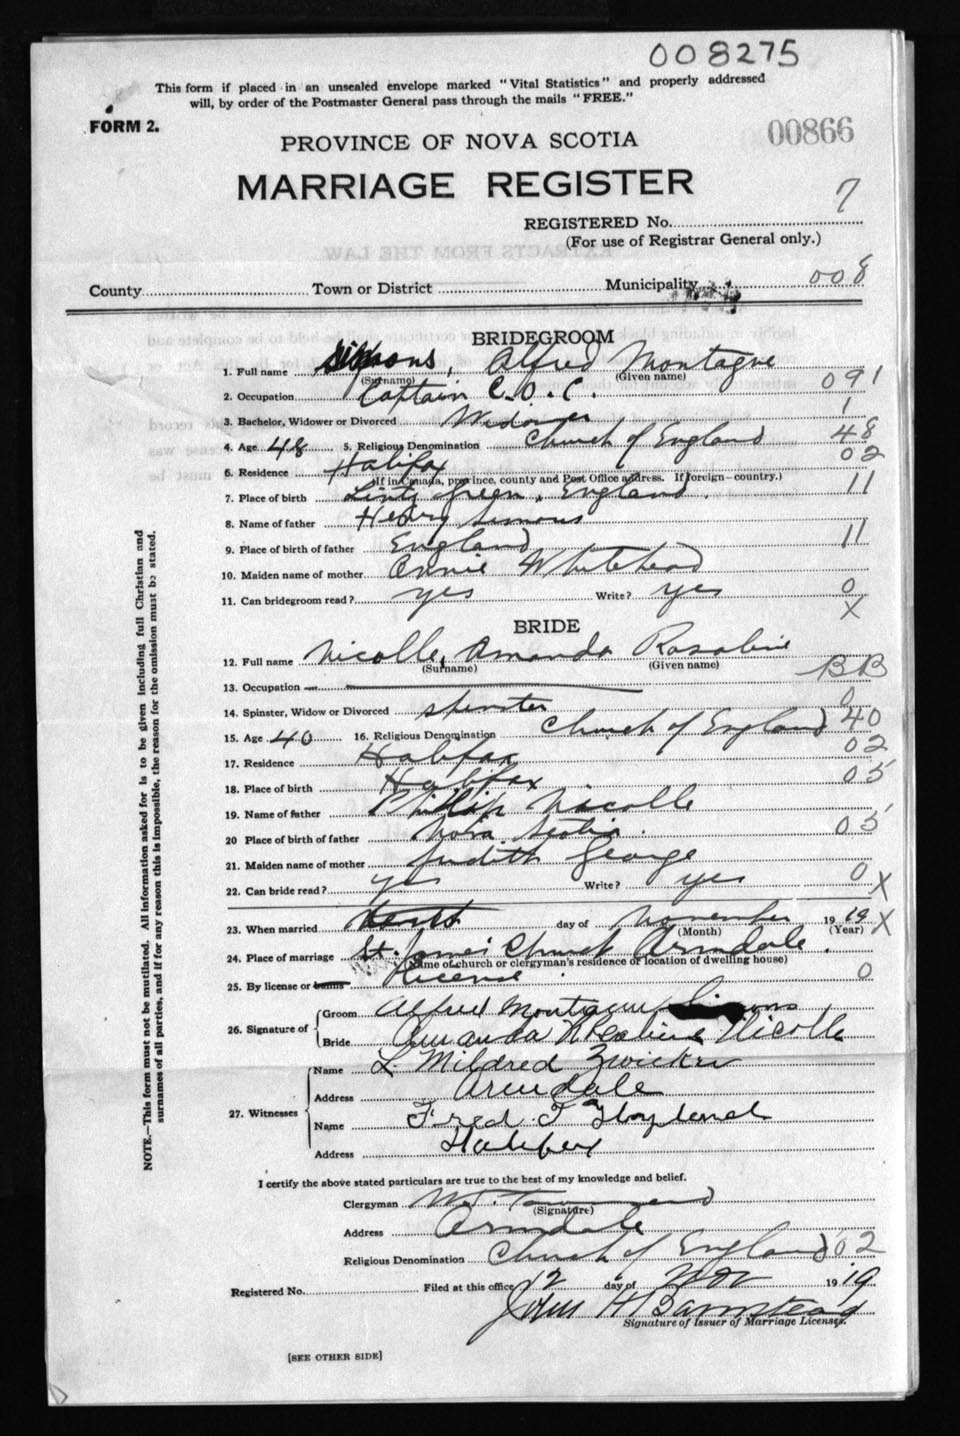 008275
This form if placed in an unsealed envelope marked "Vital Statistics" and properly addressed
will, by order of the Postmaster General pass through the mails "FREE."
FORM 2.
00866
PROVINCE OF NOVA SCOTIA
MARRIAGE REGISTER
7
REGISTERED No.
(For use of Registrar General only.)
County Town or District Municipality 008
BRIDEGROOM
1. Full name Simons, Alfred Montague
(Surname) (Given name)
2. Occupation Captain C.O.C. 091
3. Bachelor, Widower or Divorced Widower 1
4. Age 48 5. Religious Denomination Church of England 48
6. Residence Halifax 02
(If in Canada, province, county and Post Office address. If foreign—country.)
7. Place of birth Lintz Green, England. 11
8. Name of father Henry Simons
9. Place of birth of father England 11
10. Maiden name of mother Annie Whitehead
11. Can bridegroom read? yes Write? yes 0
X
BRIDE
12. Full name Nicolle, Amanda Rosaline
(Surname) (Given name)
13. Occupation BB
14. Spinster, Widow or Divorced spinster 0
15. Age 40 16. Religious Denomination Church of England 40
17. Residence Halifax 02
18. Place of birth Halifax 05
19. Name of father Phillip Nicolle
20 Place of birth of father Nova Scotia. 05
21. Maiden name of mother Judith George
22. Can bride read? yes Write? yes 0 X
23. When married day of November 1919 X
(Month) (Year)
24. Place of marriage St. James Church Armdale.
(Name of church or clergyman's residence or location of dwelling house)
25. By license or banns License. 0
26. Signature of Groom Alfred Montague Simons
Bride Amanda Rosaline Nicolle
27. Witnesses Name L. Mildred Zwicker
Address Armdale
Name Fred T
Address Halifax
I certify the above stated particulars are true to the best of my knowledge and belief.
Clergyman Townsend
(Signature)
Address Armdale
Religious Denomination Church of England 02
Registered No. Filed at this office 12 day of Nov 1919
John H Barnstead
Signature of Issuer of Marriage Licenses.
[SEE OTHER SIDE]
NOTE.—This form must not be mutilated. All information asked for is to be given including full Christian and
surnames of all parties, and if for any reason this is impossible, the reason for the omission must be stated.